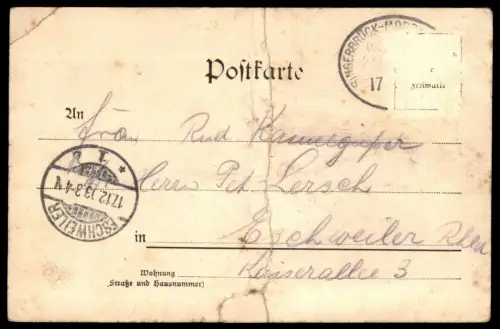 BINGERBRÜCK-
17
Postkarte
Freimarke
An Frau Rud Kannegießer
Herrn Pet. Lersch
17.12.13.3-4N
ESCHWEILER
in Eschweiler Rhld
Wohnung Kaiserallee 3
(Straße und Hausnummer)